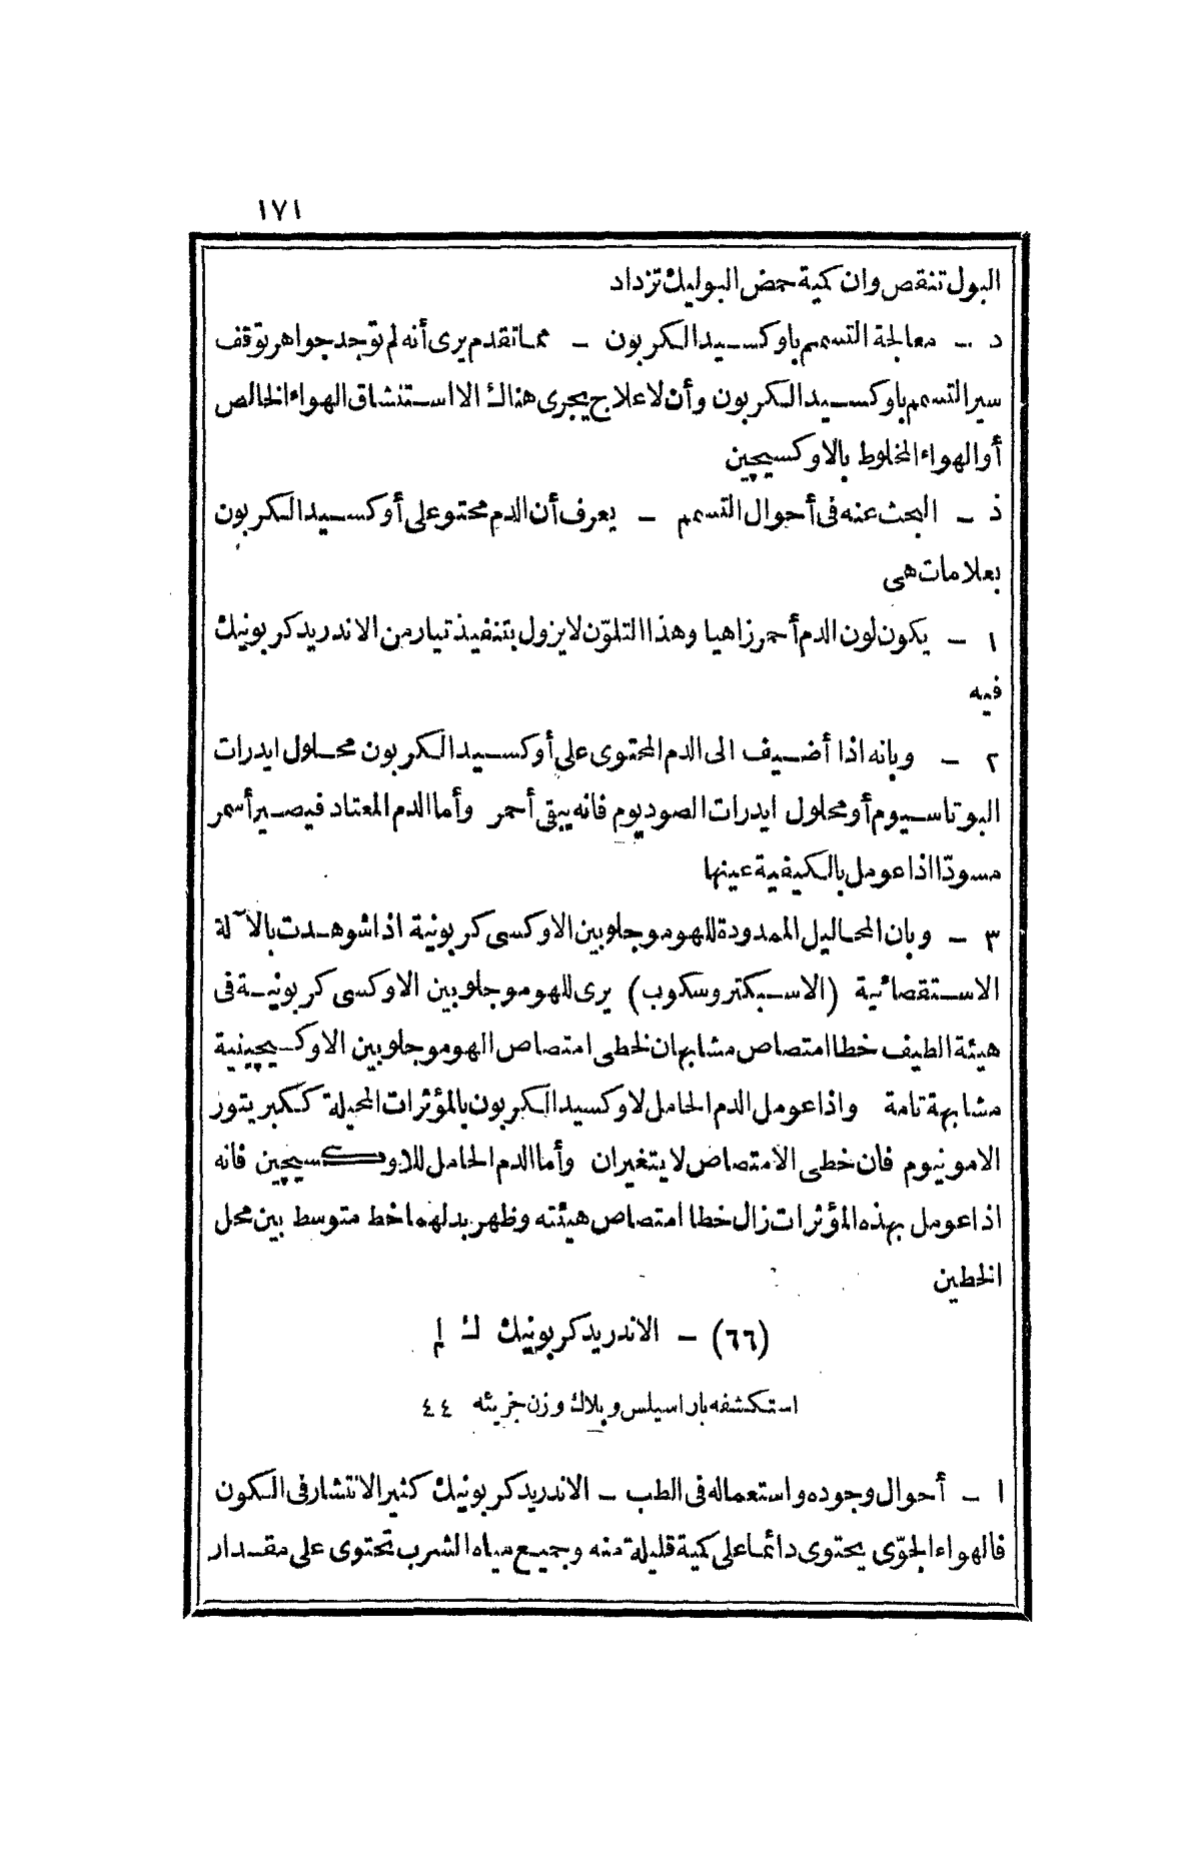 ١٧١
البول تنقص وان كمية حمض البوليك تزداد
د - معالجة التسمم باوكسيد الكربون - مما تقدم يرى أنه لم توجد جواهر توقف
سير التسمم باوكسيد الكربون وأن لا علاج يجرى هناك الا استنشاق الهواء الخالص
أو الهواء المخلوط بالاوكسيجين
ذ - البحث عنه فى أحوال التسمم - يعرف أن الدم محتو على أوكسيد الكربون
بعلامات هى
١ - يكون لون الدم أحمر زاهيا وهذا التلوّن لا يزول بتنفيذ تيار من الاندريد كربونيك
فيه
٢ - وبانه اذا أضيف الى الدم المحتوى على أوكسيد الكربون محلول ايدرات
البوتاسيوم أو محلول ايدرات الصوديوم فانه يبقى أحمر وأما الدم المعتاد فيصير أسمر
مسودّا اذا عومل بالكيفية عينها
٣ - وبان المحاليل الممدودة للهوموجلوبين الاوكسى كربونية اذا شوهدت بالآلة
الاستقصائية (الاسبكتروسكوب) يرى للهوموجلوبين الاوكسى كربونية فى
هيئة الطيف خطا امتصاص مشابهان لخطى امتصاص الهوموجلوبين الاوكسيجينية
مشابهة تامة واذا عومل الدم الحامل لاوكسيد الكربون بالمؤثرات المحيلة ككبريتور
الامونيوم فان خطى الامتصاص لا يتغيران وأما الدم الحامل للاوكسيجين فانه
اذا عومل بهذه المؤثرات زال خطا امتصاص هيئته وظهر بدلهما خط متوسط بين محل
الخطين
(٦٦) - الاندريد كربونيك ك ا٢
استكشفه باراسيلس وبلاك وزن جزيئه ٤٤
ا - أحوال وجوده واستعماله فى الطب - الاندريد كربونيك كثير الانتشار فى الكون
فالهواء الجوّى يحتوى دائما على كمية قليلة منه وجميع مياه الشرب تحتوى على مقدار